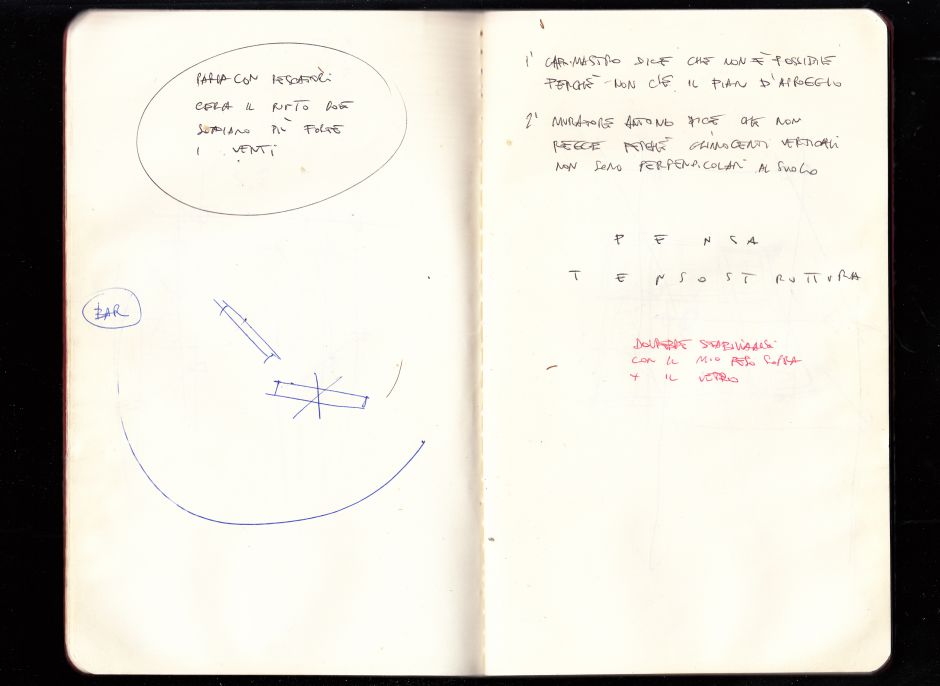 PARLA CON PESCATORI
CERCA IL PUNTO DOVE
SOFFIANO PIÙ FORTE
I VENTI
BAR
1° CAPOMASTRO DICE CHE NON È POSSIBILE
PERCHÈ NON C'È IL PIAN D'APPOGGIO
2° MURATORE ANTONIO DICE CHE NON
REGGE PERCHÈ VERTICALI
NON SONO PERPENDICOLARI AL SUOLO
P E N S A
T E N S O S T R U T T U R A
DOVREBBE STABILIZZARSI
CON IL MIO PESO SOPRA
+ IL VETRO